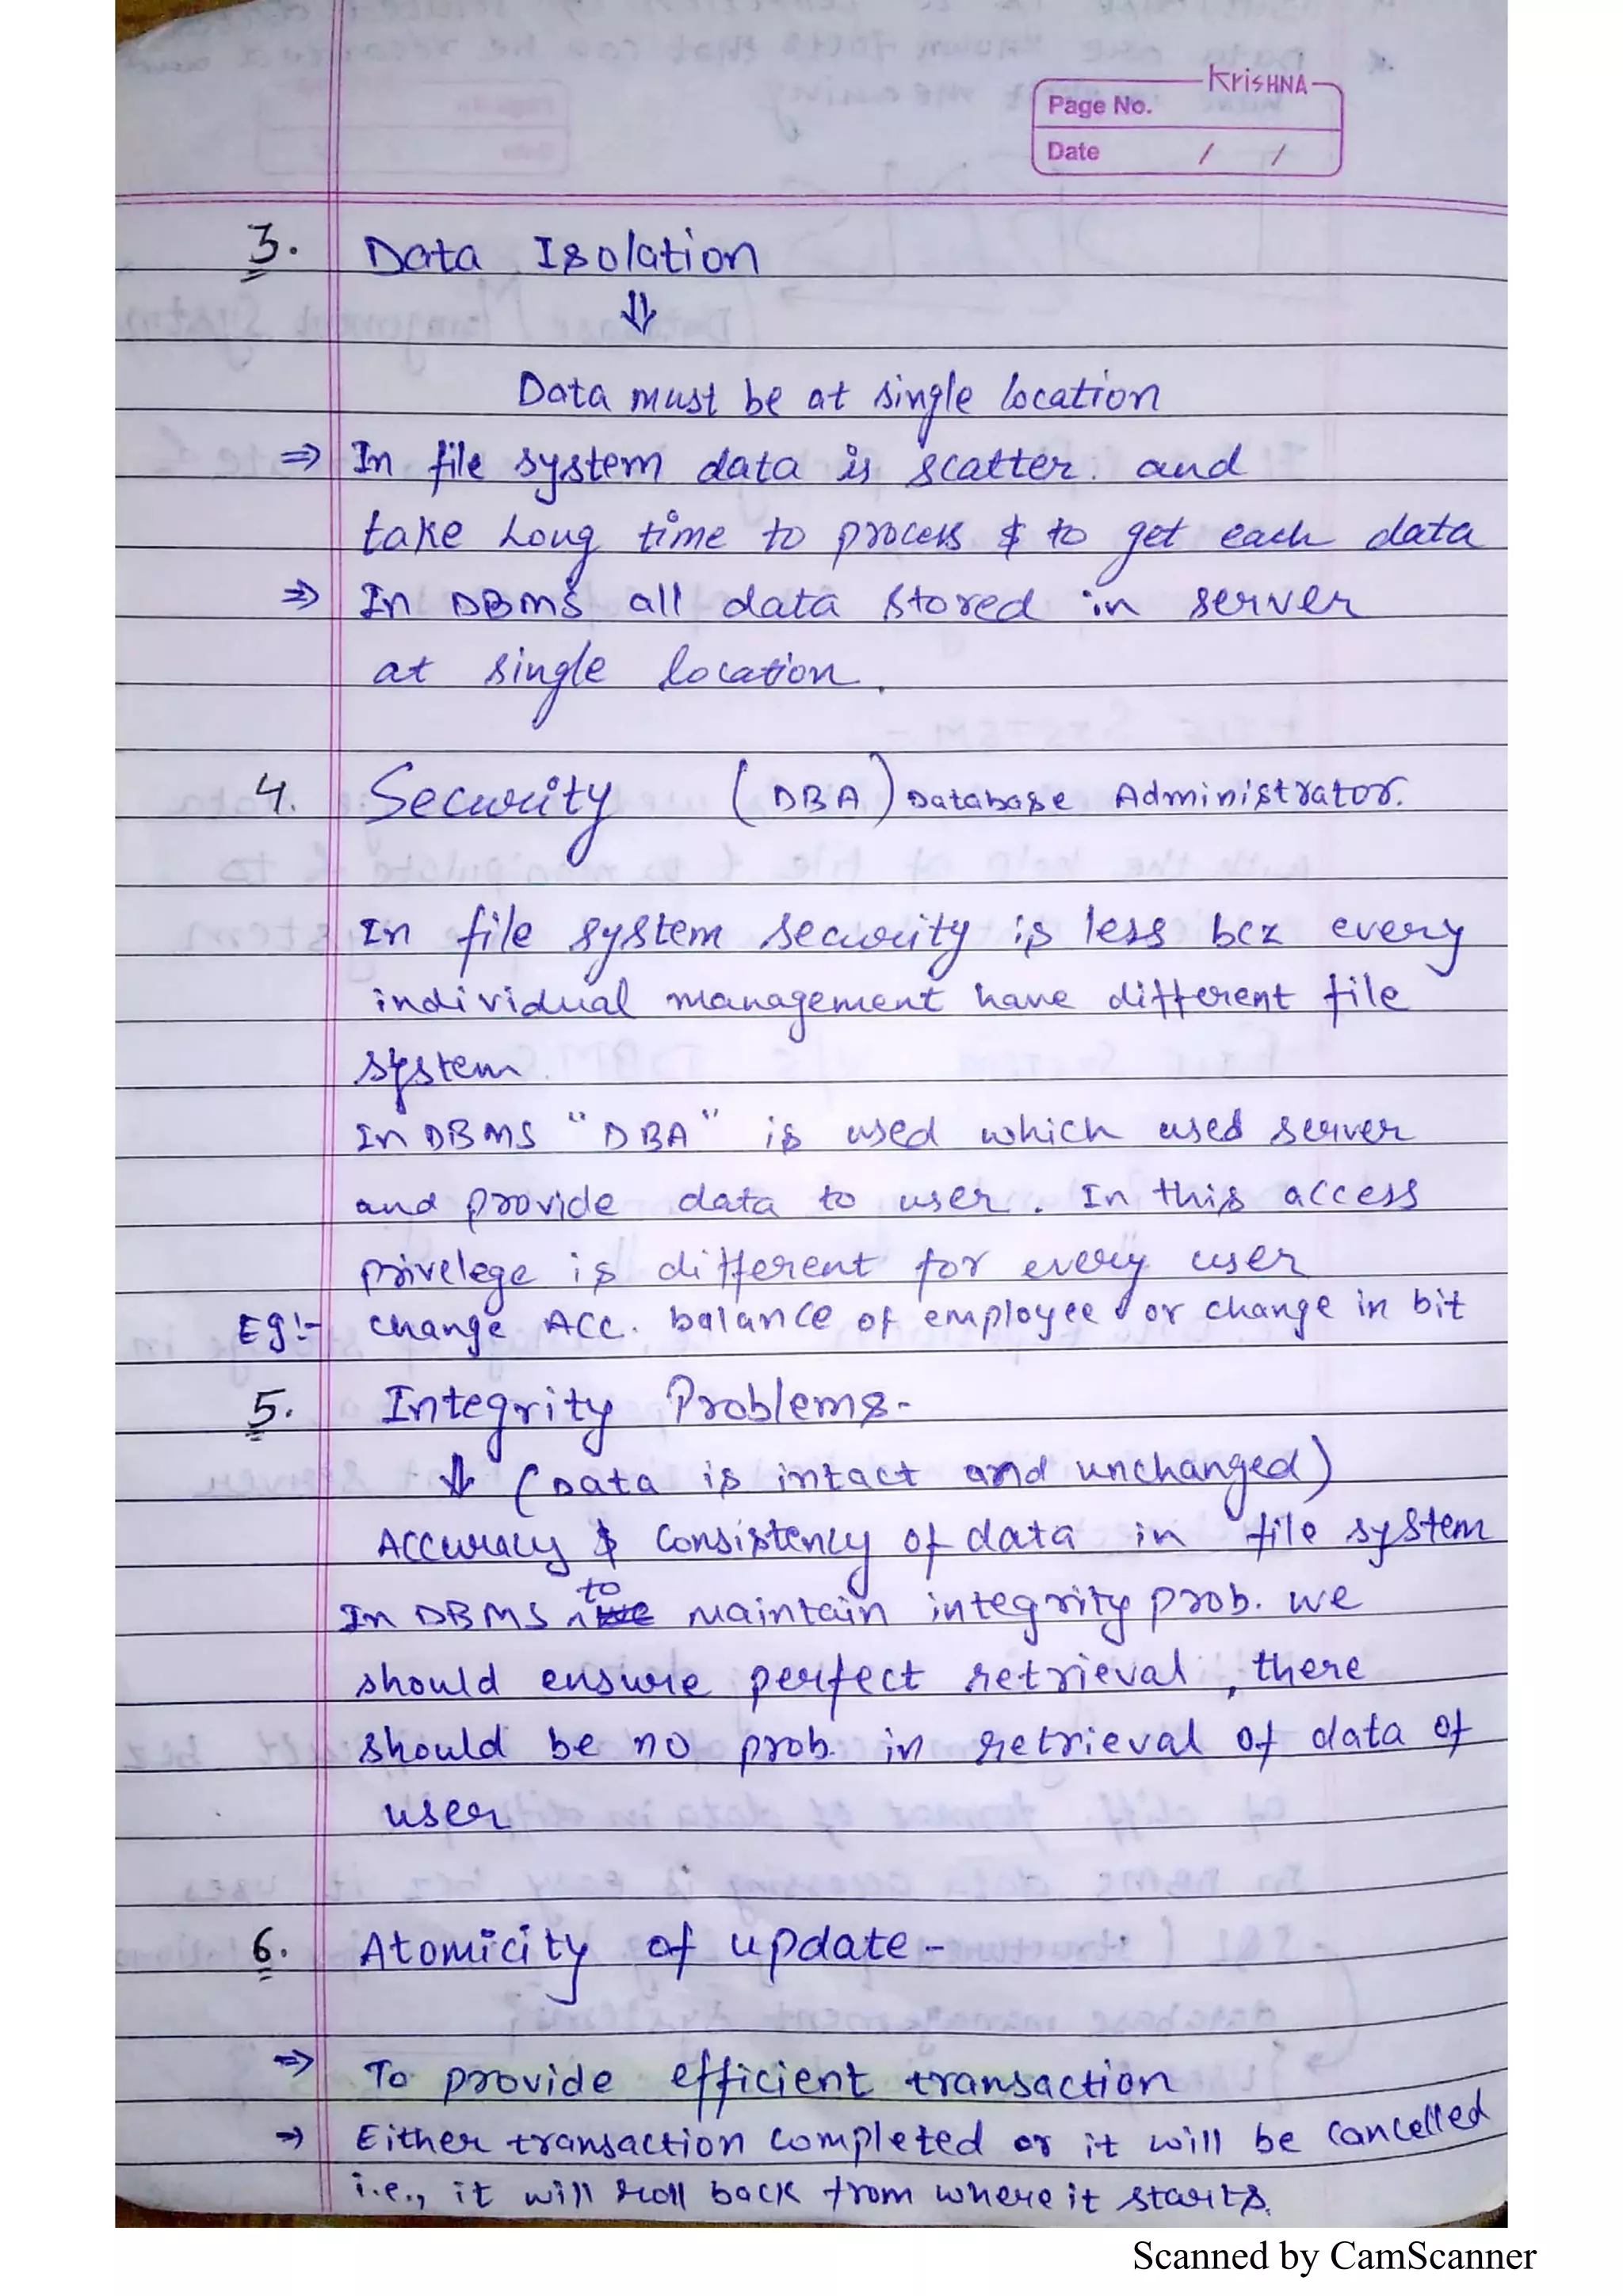 KrisHNA
Page No.
Date / /
3. Data Isolation
⇓
Data must be at single location
⇒ In file system data is scatter. and
take Long time to process & to get each data
⇒ In DBMS all data stored in server
at single location.
4. Security (DBA) Database Administrator.
In file system security is less bcz every
individual management have different file
system
In DBMS "DBA" is used which used server
and provide data to user. In this access
privelege is different for every user
Eg:- change Acc. balance of employee or change in bit
5. Integrity Problems-
⇓ (Data is intact and unchanged)
Accuracy & Consistency of data in file system
In DBMS to maintain integrity prob. we
should ensure perfect retrieval, there
should be no prob. in retrieval of data of
user
6. Atomicity of update -
⇒ To provide efficient transaction
⇒ Either transaction completed or it will be cancelled
i.e., it will roll back from where it starts.
Scanned by CamScanner